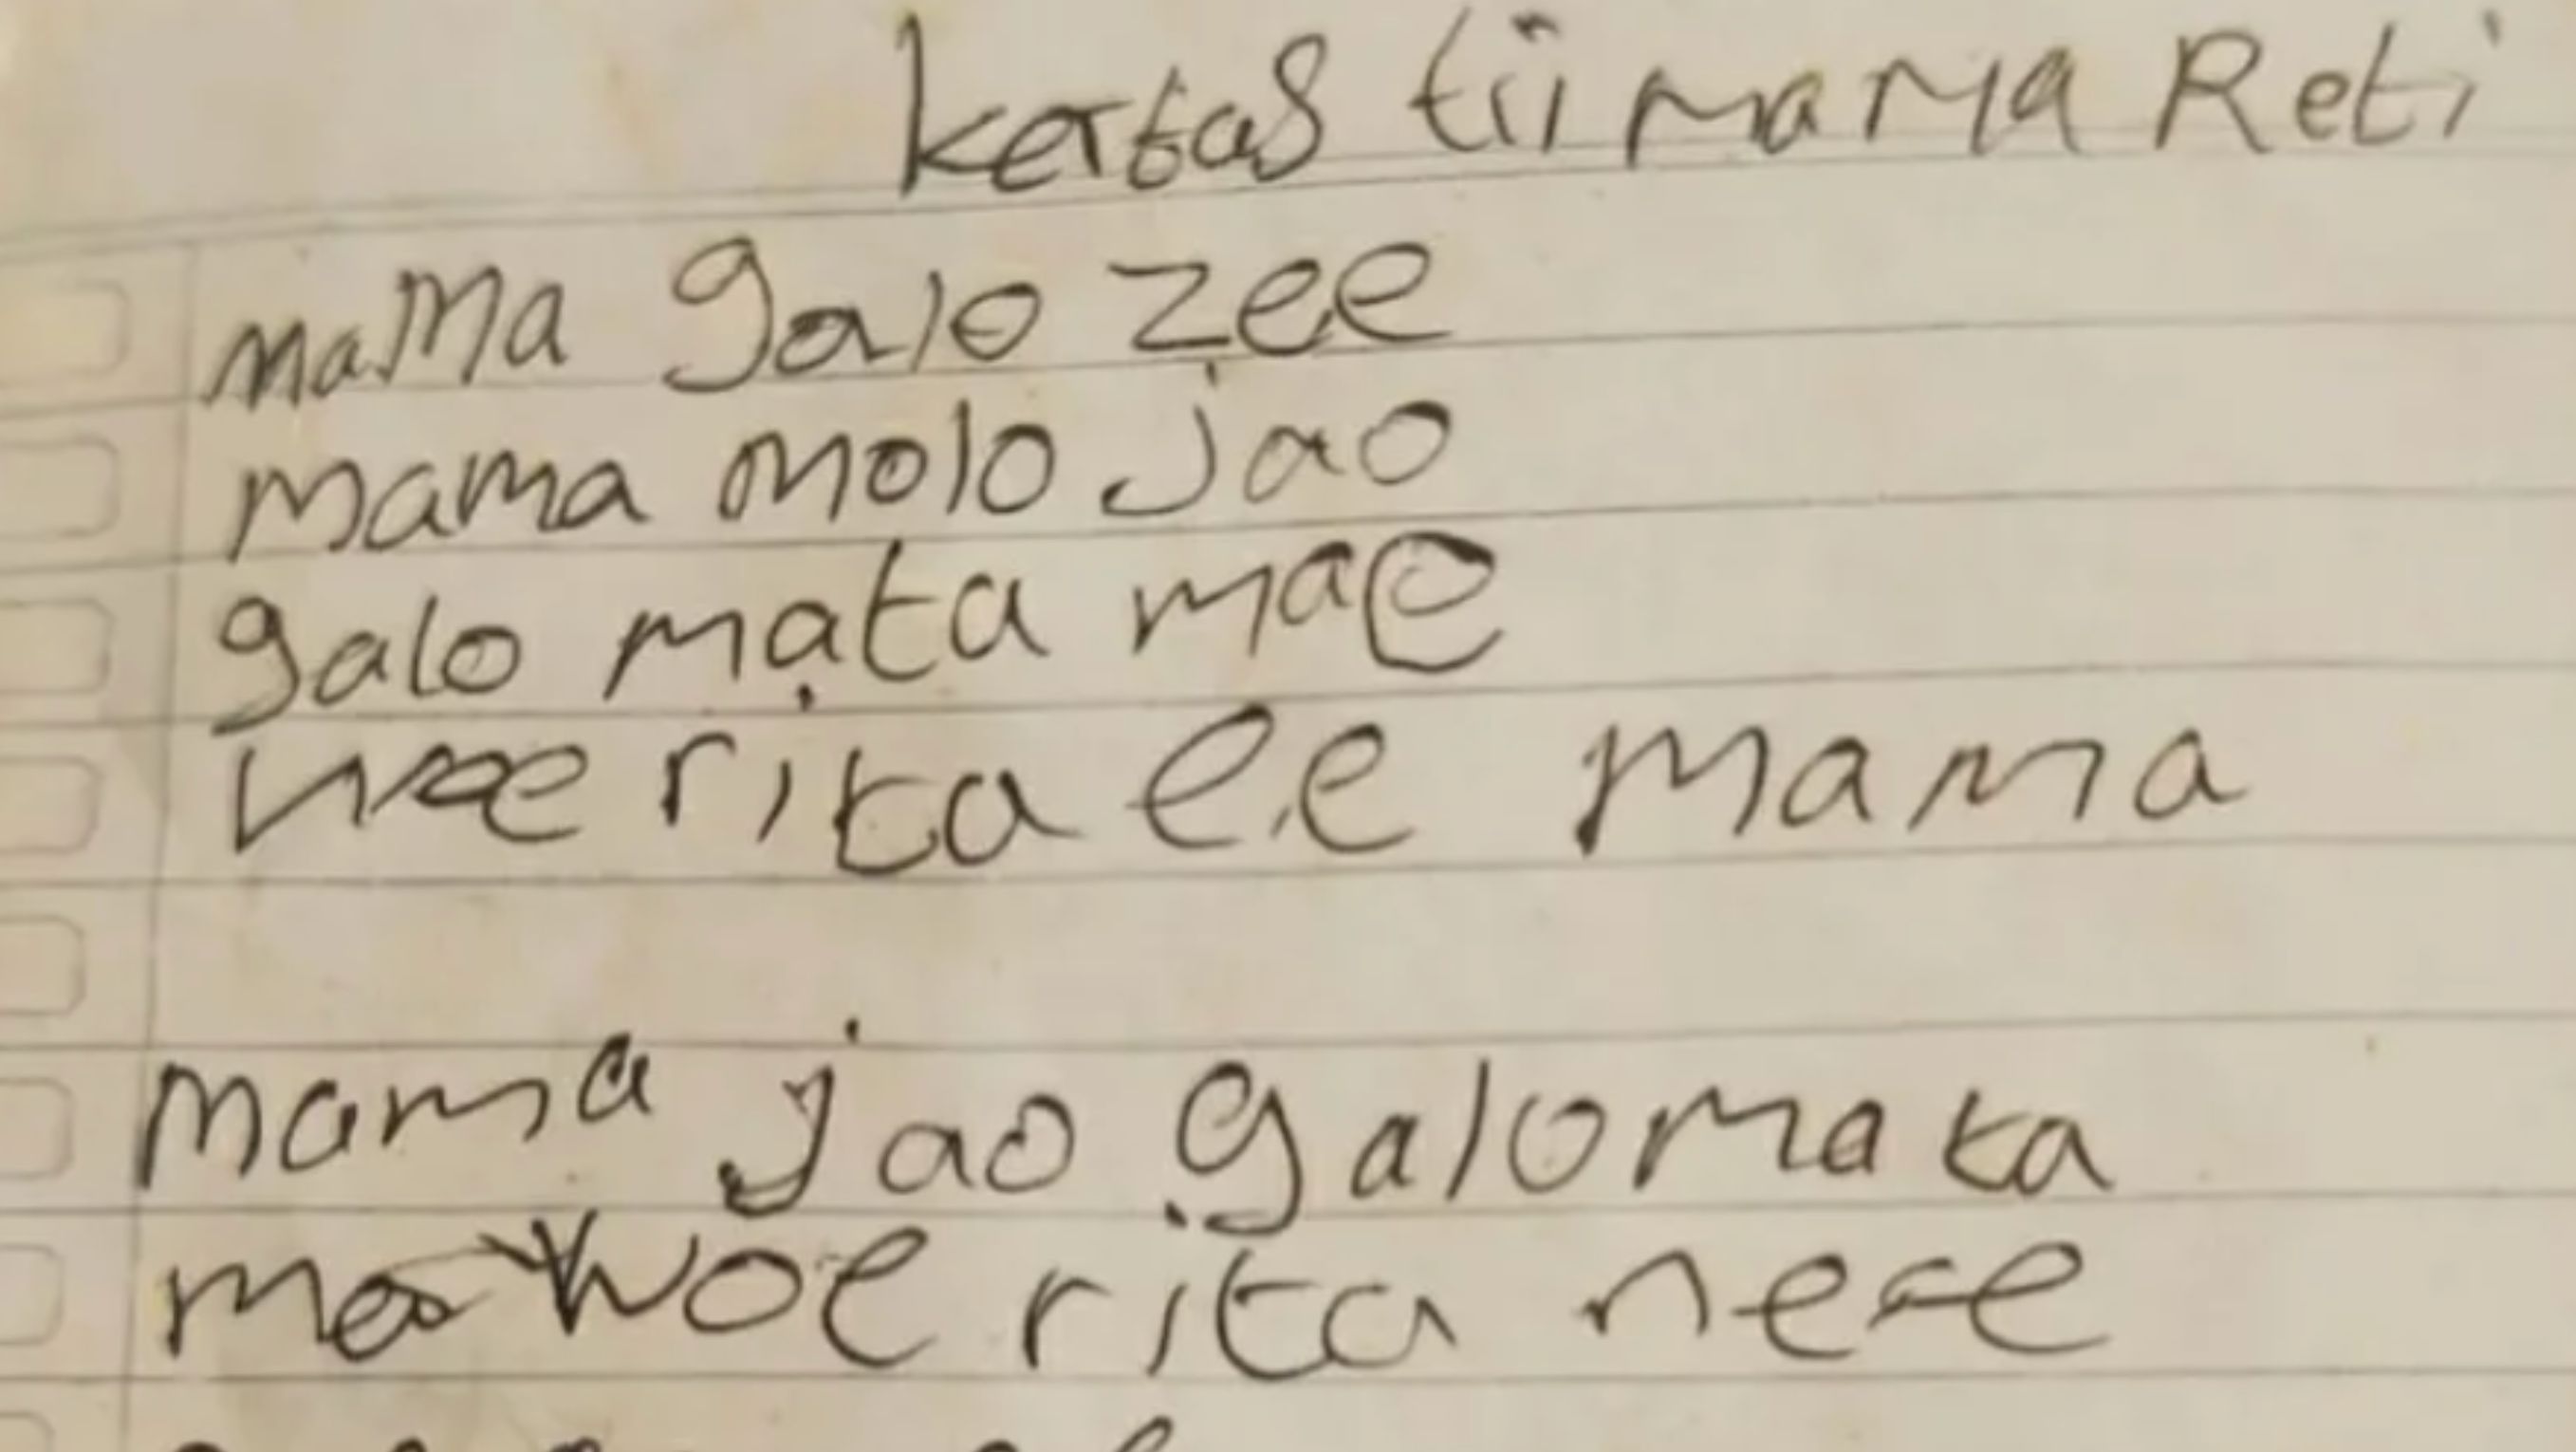 kertas tii mama Reti
mama galo zee
mama molo jao
galo mata mae
woe rita ee mama
mama jao galo mata
mae woe rita ne e